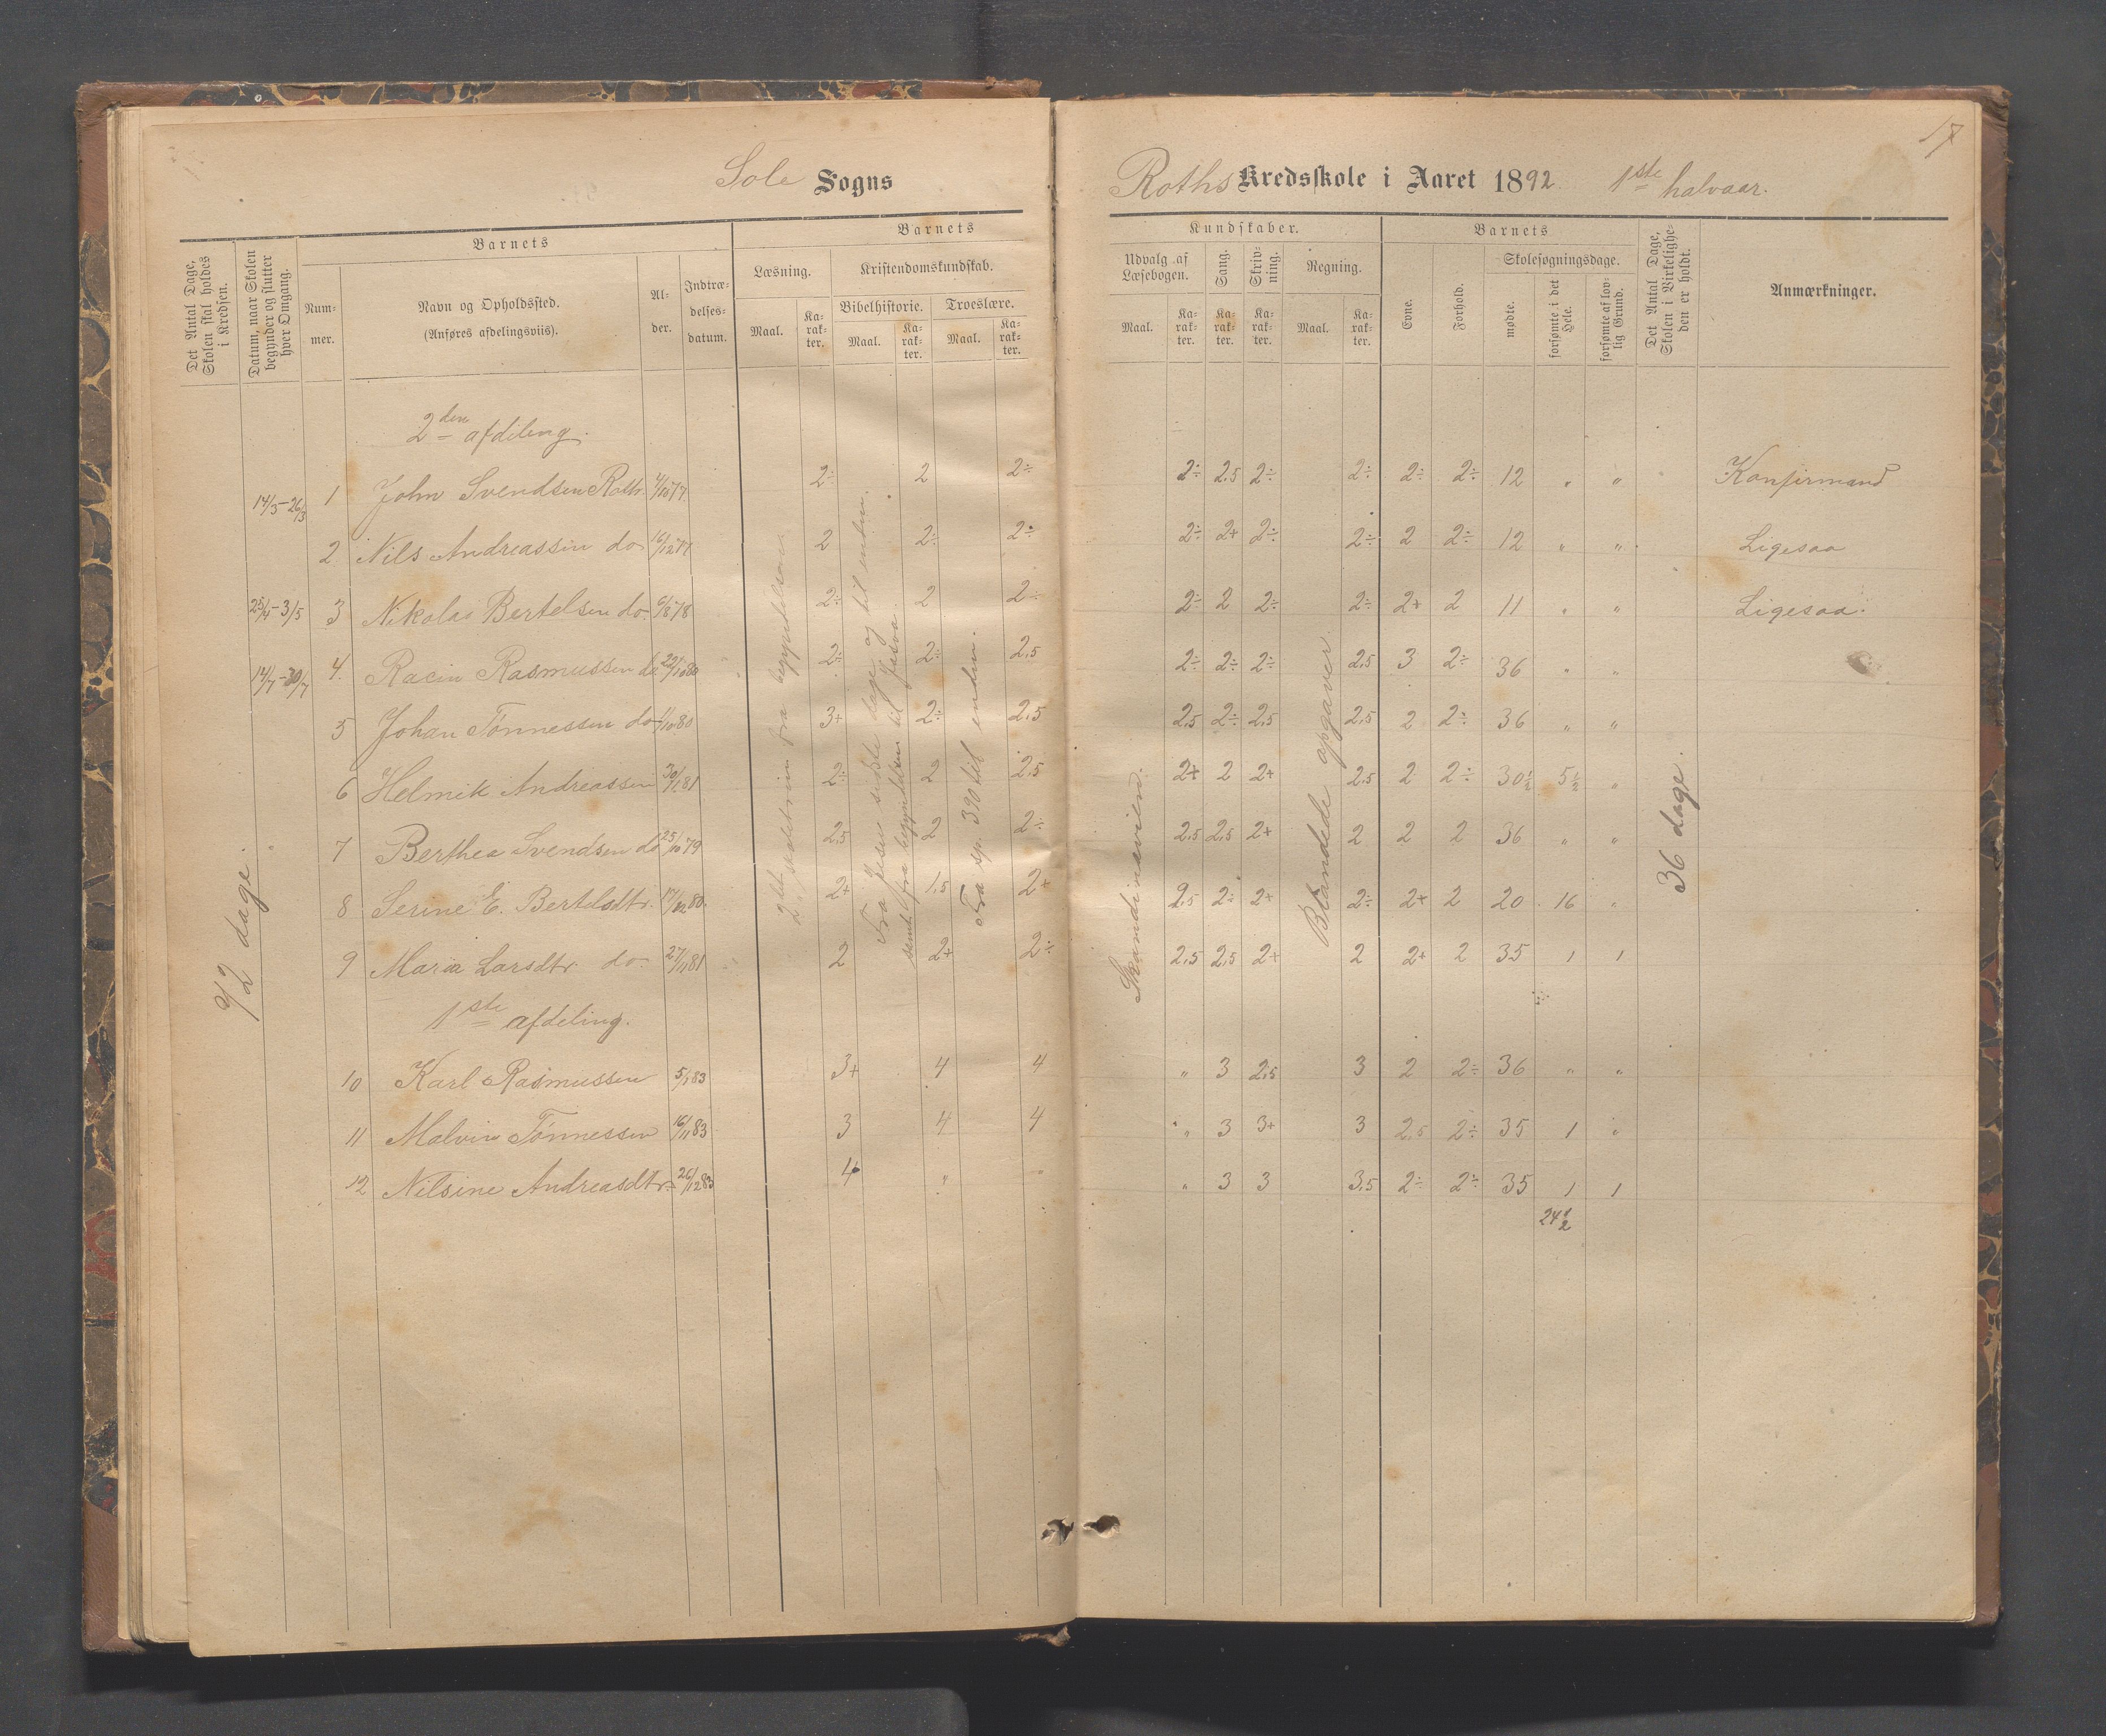 17
Sole Sogns
Roths Kredsskole i Aaret 1892. 1ste halvaar.
Det Antal Dage, Skolen skal holdes i Kredsen.
Datum, naar Skolen begynder og slutter hver Omgang.
Barnets
Nummer.
Navn og Opholdssted.
(Anføres afdelingsviis).
Alder.
Indtrædelsesdatum.
Barnets
Læsning.
Maal.
Karakter.
Kristendomskundskab.
Bibelhistorie.
Maal.
Karakter.
Troeslære.
Maal.
Karakter.
Kundskaber.
Udvalg af Læsebogen.
Maal.
Karakter.
Sang.
Karakter.
Skrivning.
Karakter.
Regning.
Maal.
Karakter.
Barnets
Evne.
Forhold.
Skolesøgningsdage.
mødte.
forsømte i det Hele.
forsømte af lovlig Grund.
Det Antal Dage, Skolen i Virkeligheden er holdt.
Anmærkninger.
2den afdeling.
14/3–26/3
1 John Svendsen Roth. 77 2÷ 2 2÷ 2÷ 2,5 2÷ 2÷ 2÷ 2÷ 12 " " Konfirmand
2 Nils Andreassen do 16/12 77 2 2÷ 2÷ 2÷ 2+ 2÷ 2÷ 2 2÷ 12 " " Ligesaa
25/4–3/5 3 Nikolai Bertelsen do. 6/8 78 2÷ 2 2÷ 2÷ 2 2÷ 2÷ 2+ 2 11 " " Ligesaa.
14/7–30/7 4. Racin Rasmussen do. 22/10 80 2÷ 2÷ 2,5 2÷ 2÷ 2÷ 2,5 3 2÷ 36 " "
5 Johan Tönnessen do 1/10 80 3+ 2÷ 2,5 2,5 2÷ 2,5 2,5 2 2÷ 36 " "
6 Helmik Andreassen 30/1 81 2÷ 2 2,5 2+ 2 2+ 2,5 2 2÷ 30½ 5½ "
7 Berthea Svendsen do 25/10 79 2,5 2 2÷ 2,5 2,5 2+ 2 2 2 36 " "
8 Serine E. Bertelsdtr. 17/12 80. 2+ 1,5 2+ 2,5 2÷ 2+ 2÷ 2+ 2 20 16 "
9 Maria Larsdtr. do. 27/11 81 2 2+ 2÷ 2,5 2,5 2+ 2 2+ 2 35 1 1
1ste afdeling.
10 Karl Rasmussen 5/1 83 3+ 4 4 " 3 2,5 3 2 2÷ 36 " "
11 Malvin Tönnessen 16/11 83 3 4 4 " 3 3+ 3 2,5 2÷ 35 1 "
12 Nilsine Andreasdtr. 26/12 83 4 " " " 3 3 3,5 2÷ 2÷ 35 1 1
24½
72 dage.
2det skoletrin fra begyndelsen
Fra Jesu sidste dage og til enden.
samt fra begyndelsen til
Fra sp. 390 til enden.
Skandinavien.
Blandede opgaver.
36 dage.